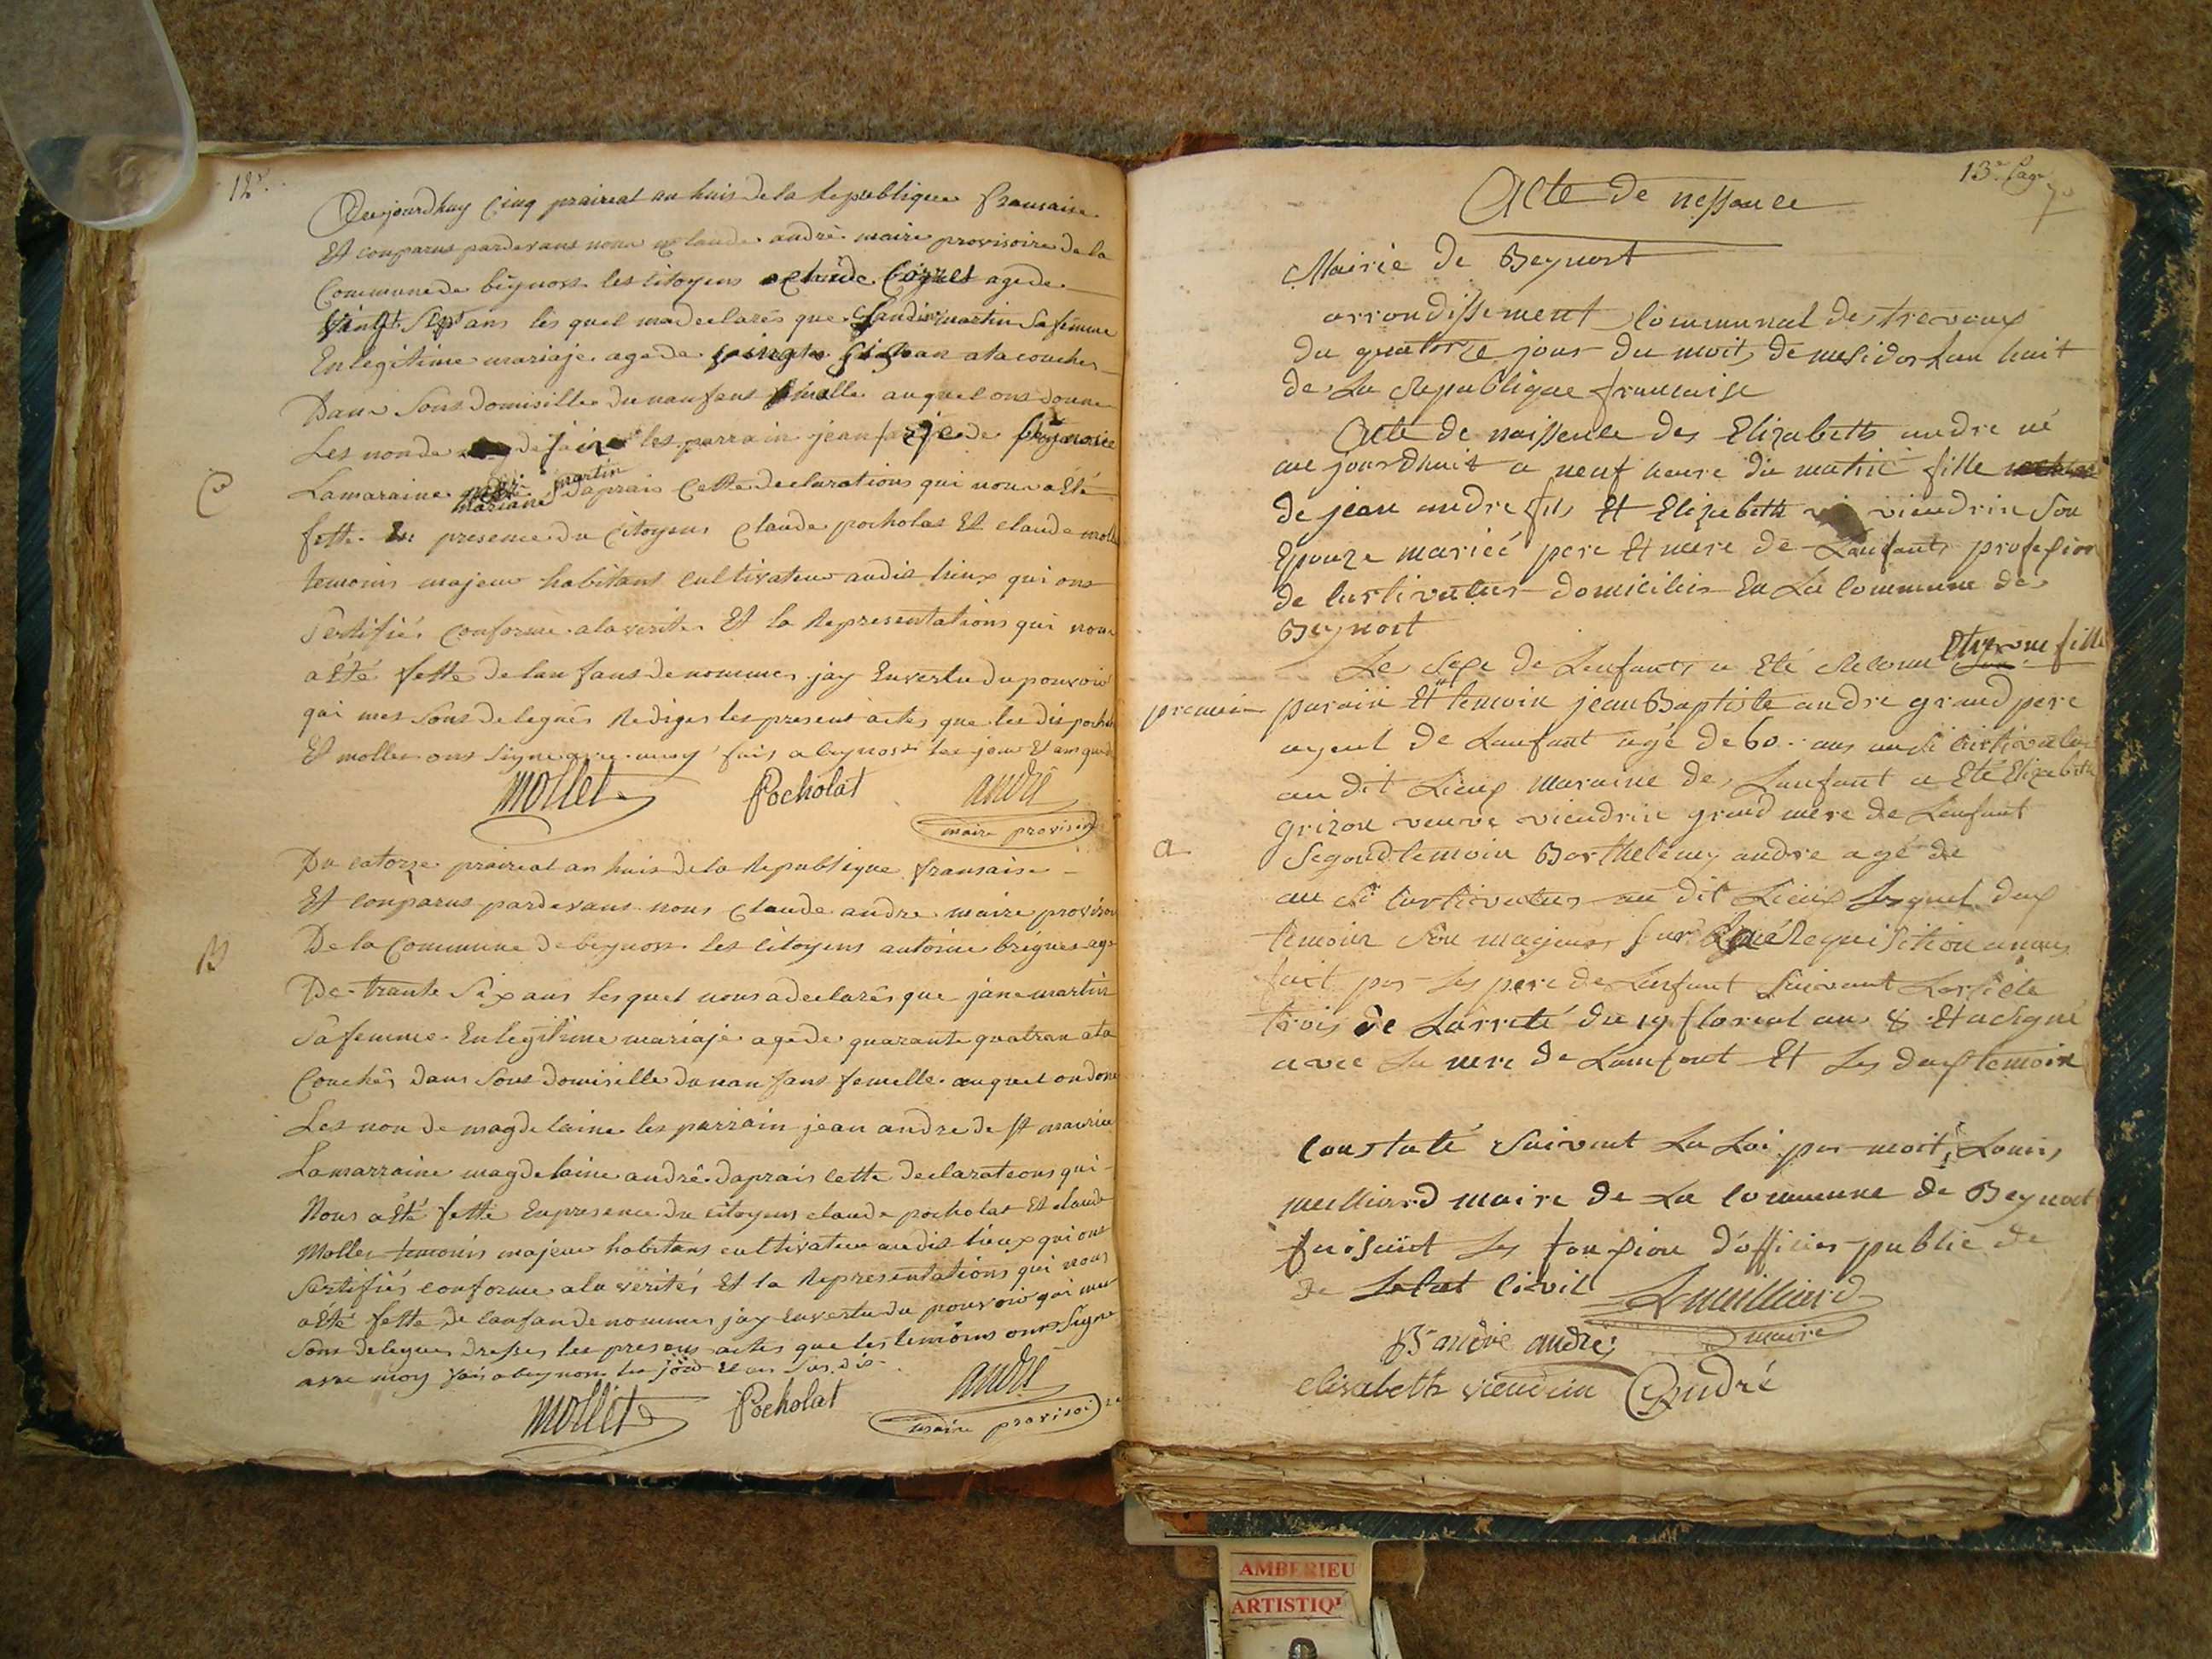 12e.
Aujourdhuy Cinq praireal an huis de la Republique fransaise
Et conparus pardevans nous claude andré maire provisoire de la
Commune de beynost les citoyens claude Cozzet agede
vingt Sept ans les quel ma declarés que Claudine martin Sa femme
En legitime mariaje agede vingt an ala coucher
Dans Sons domisille dunanfans femelle auquel ons donne
Les non de les parrain jean farje de
C
Lamaraine mariane martin daprais Cette declarations qui nous a Eté
fette En presence du Citoyens Claude pocholat Et claude molle
temoins majeur habitans cultivateur audis lieux qui ons
Sertifiés conforme ala verite Et la Representations qui nous
a Eté fette de lanfans denommes jay Envertu du pouvoir
qui mes Sons delegués Rediges les present actes que les dis pochol
Et mollet ons Signe avec moy fais a beynost les jour Et ans que de
mollet Pocholat andré
maire provisoir
Du catorze praireal an huis de la Republique fransaise
Et conparus pardevans nous Claude andre maire provisoi
B
De la Commune de beynost les citoyens antoine brigues age
De trante Six ans lesquel nous a declarés que jane martin
Sa femme En legitime mariaje agede quarante quatran ala
Couchés dans Sons domisille dunanfans femelle auquel on done
Les non de magdelaine les parrain jean andre de st maurice
Lamarraine magdelaine andré daprais cette declarateons qui
Nous a Eté fette Enpresence du citoyens claude pocholat Et claude
Mollet temoins majeur habitans cultivateur audis lieux qui ont
Sertifiés conforme ala verités Et la Representations qui nous
a Eté fette de lanfan denommes jay Envertu du pouvoir qui mes
Sons delegues dresses les presens actes que les temoins ons Signe
avec moy fais a beynost les jour Et an Sus dis
mollet Pocholat andré
maire provisoire
13e Page
Acte de nessance
Mairie de Beynost
arrondissement Communal de trevoux
du quatorze jour du mois de mesidor Lan huit
de La Republique francaise
Acte de naissence des Elizabeth andre né
au jourdhuit a neuf heure du matin fille
de jean andre fils Et Elizabeth viendrin Son
Epouze mariéé pere Et mere de Lanfant profesion
de curtivateur domicilies En La Commune de
Beynost
Le Sexe de Lenfant a Eté Reconu Etre une fille
premier parain Et temoin jean Baptiste andre grand pere
ayeul de Lanfant agé de 60. ans curtivateur
au dit Lieux Maraine de Lanfant a Eté Elizabeth
grizon veuve viendrin grand mere de Lenfant
a
Segond temoin Barthelemy andre agé de
curtivateur au dit Lieux Lesquel deux
temoin Son majeur Sur Requisition a nous
fait par Les pere de Lenfant Suivant Larticle
trois de Larreté du 19 floreal an 8 Et a Signé
avec La mere de Lanfant Et Les deux temoin
Constaté Suivant La Loi par moit, Louis
meilliard maire de La commune de Beynost
faisant Les fonxion d'officier public de
de Letat Civil L meilliard
maire
B andre andre
elisabeth viendrin André
AMBERIEU
ARTISTIQ